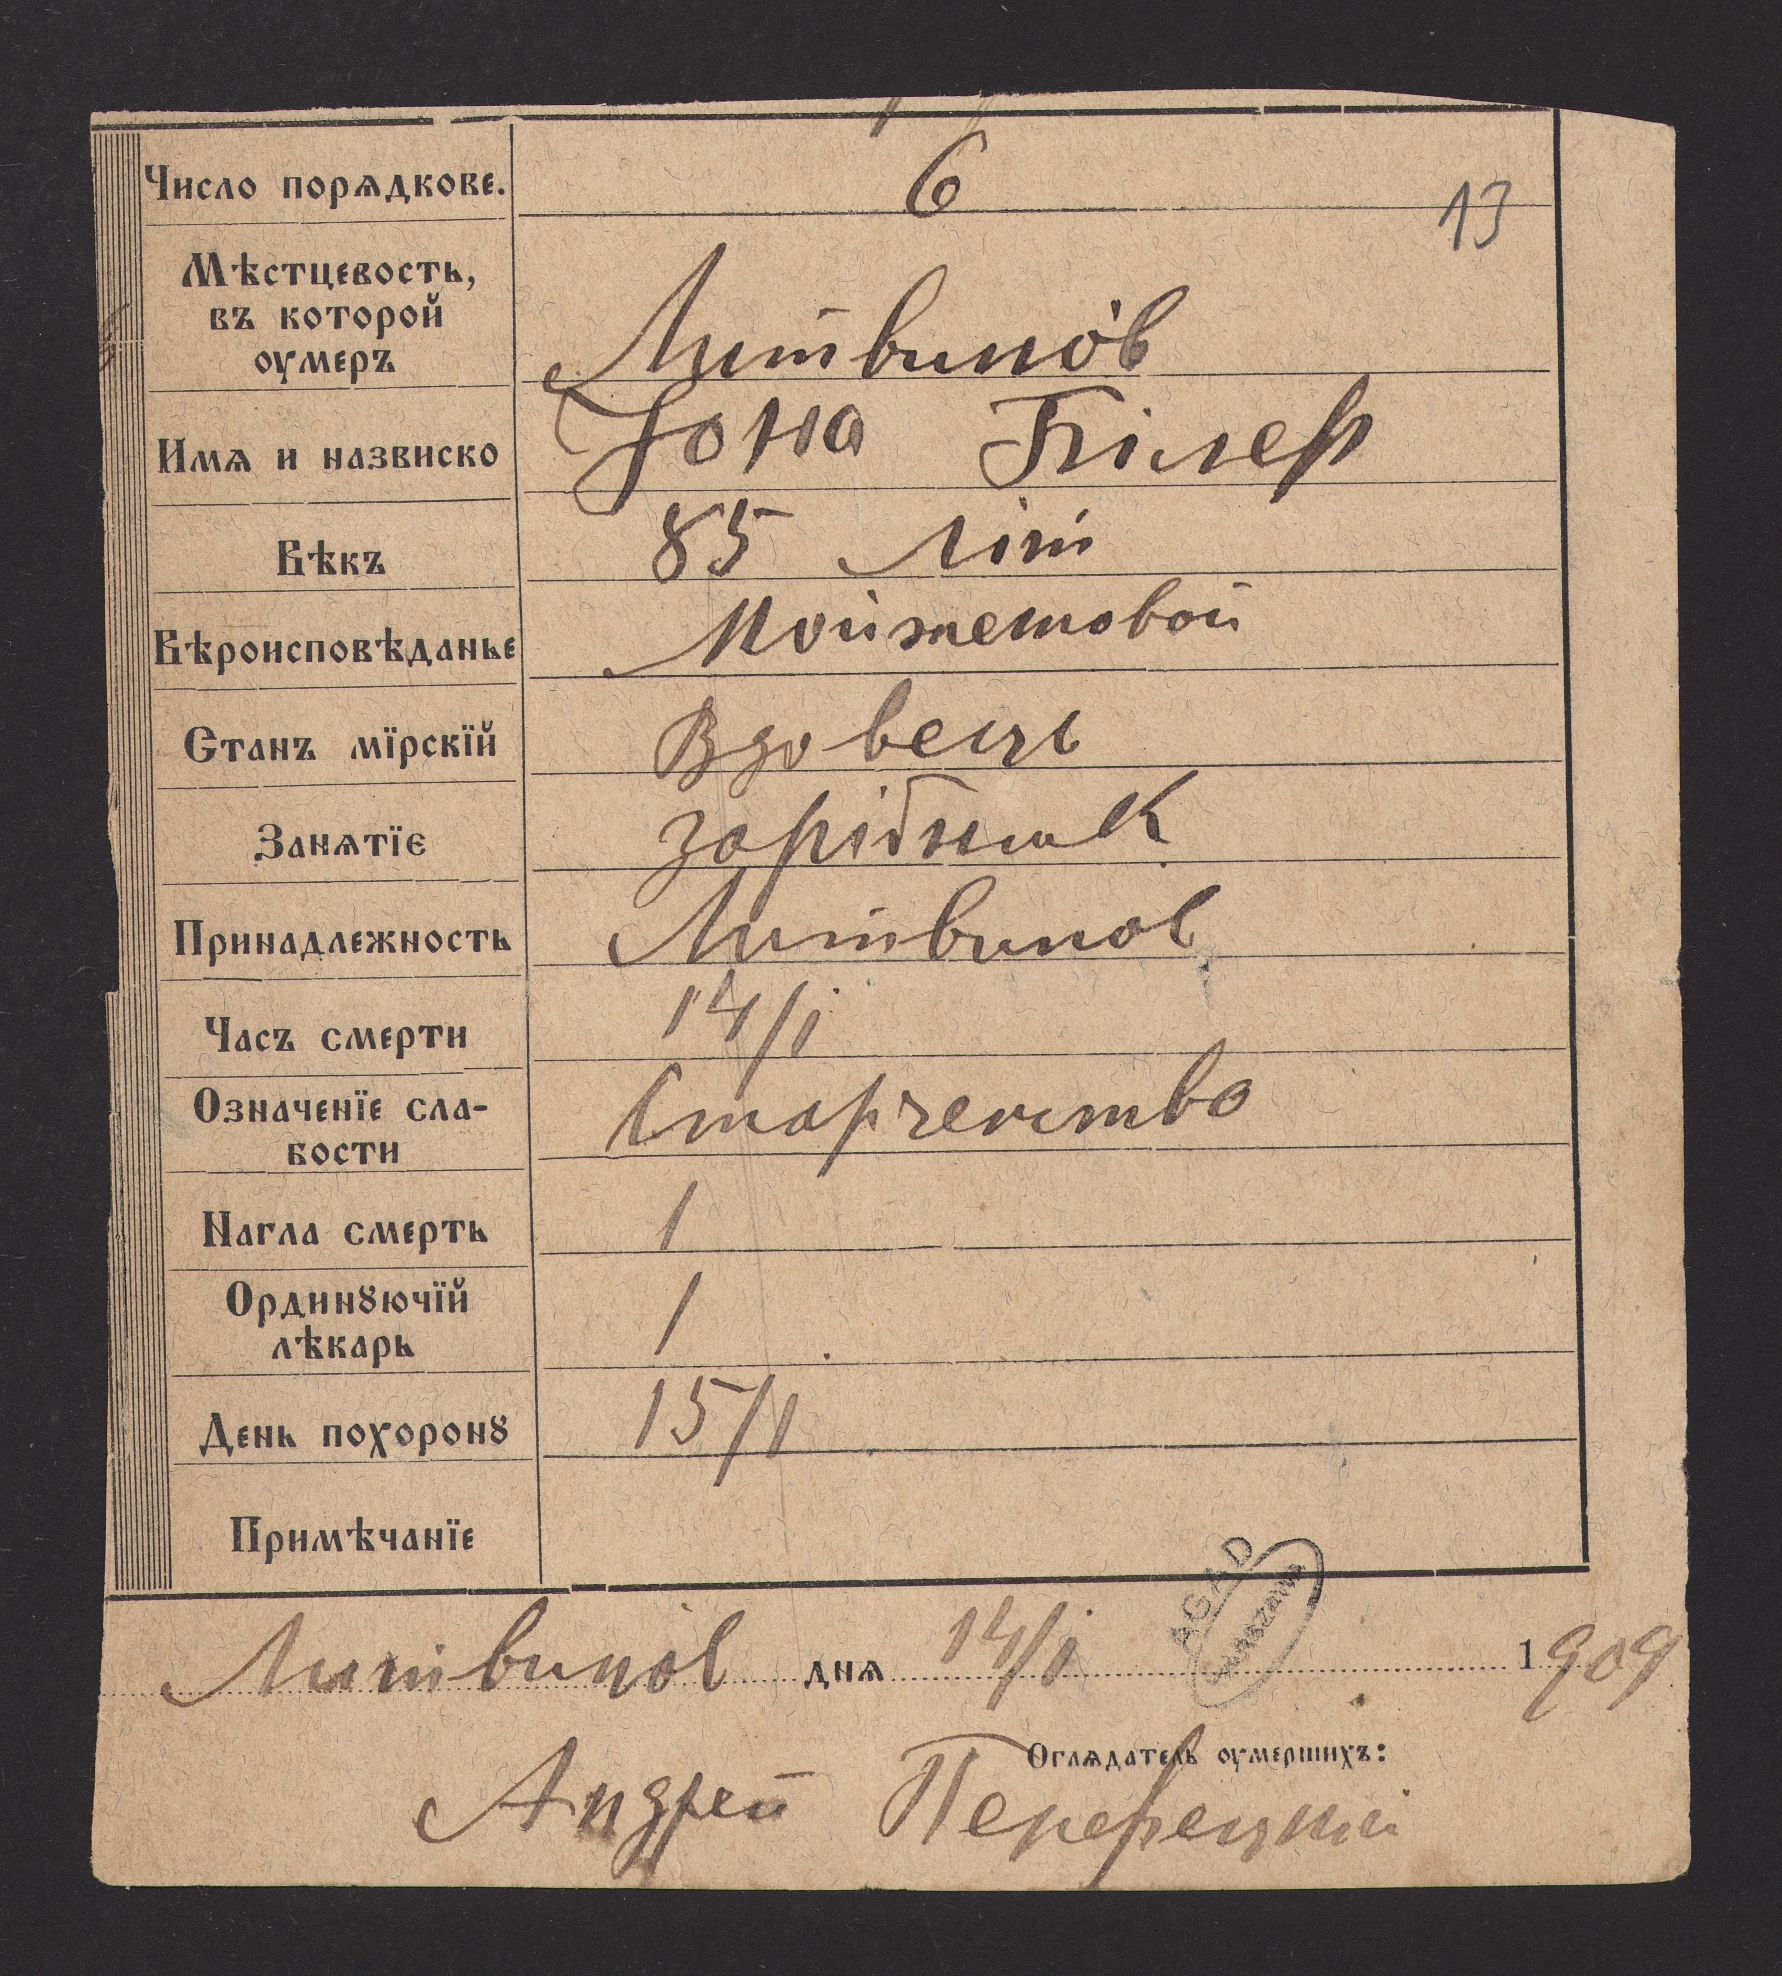 Число порѧдкове. 6
13
Мѣстцевость,
въ которой
оумеръ
Литвинóв
Имѧ и назвиско Іона Білер
Вѣкъ 85 літ
Вѣроисповѣданье Мойжешовой
Станъ мїрскїй Вдовець
Занѧтїє зарібник
Принадлежность Литвинов
Часъ смерти 14/I
Означенїе сла-
бости
Старчество
Нагла смерть /
Ординꙋючїй
лѣкарь
/
День похоронꙋ 15/I
Примѣчанїе
AGAD
WARSZAWA
Литвинов днѧ 14/I 1909
Оглѧдатель оумершихъ:
Андрей